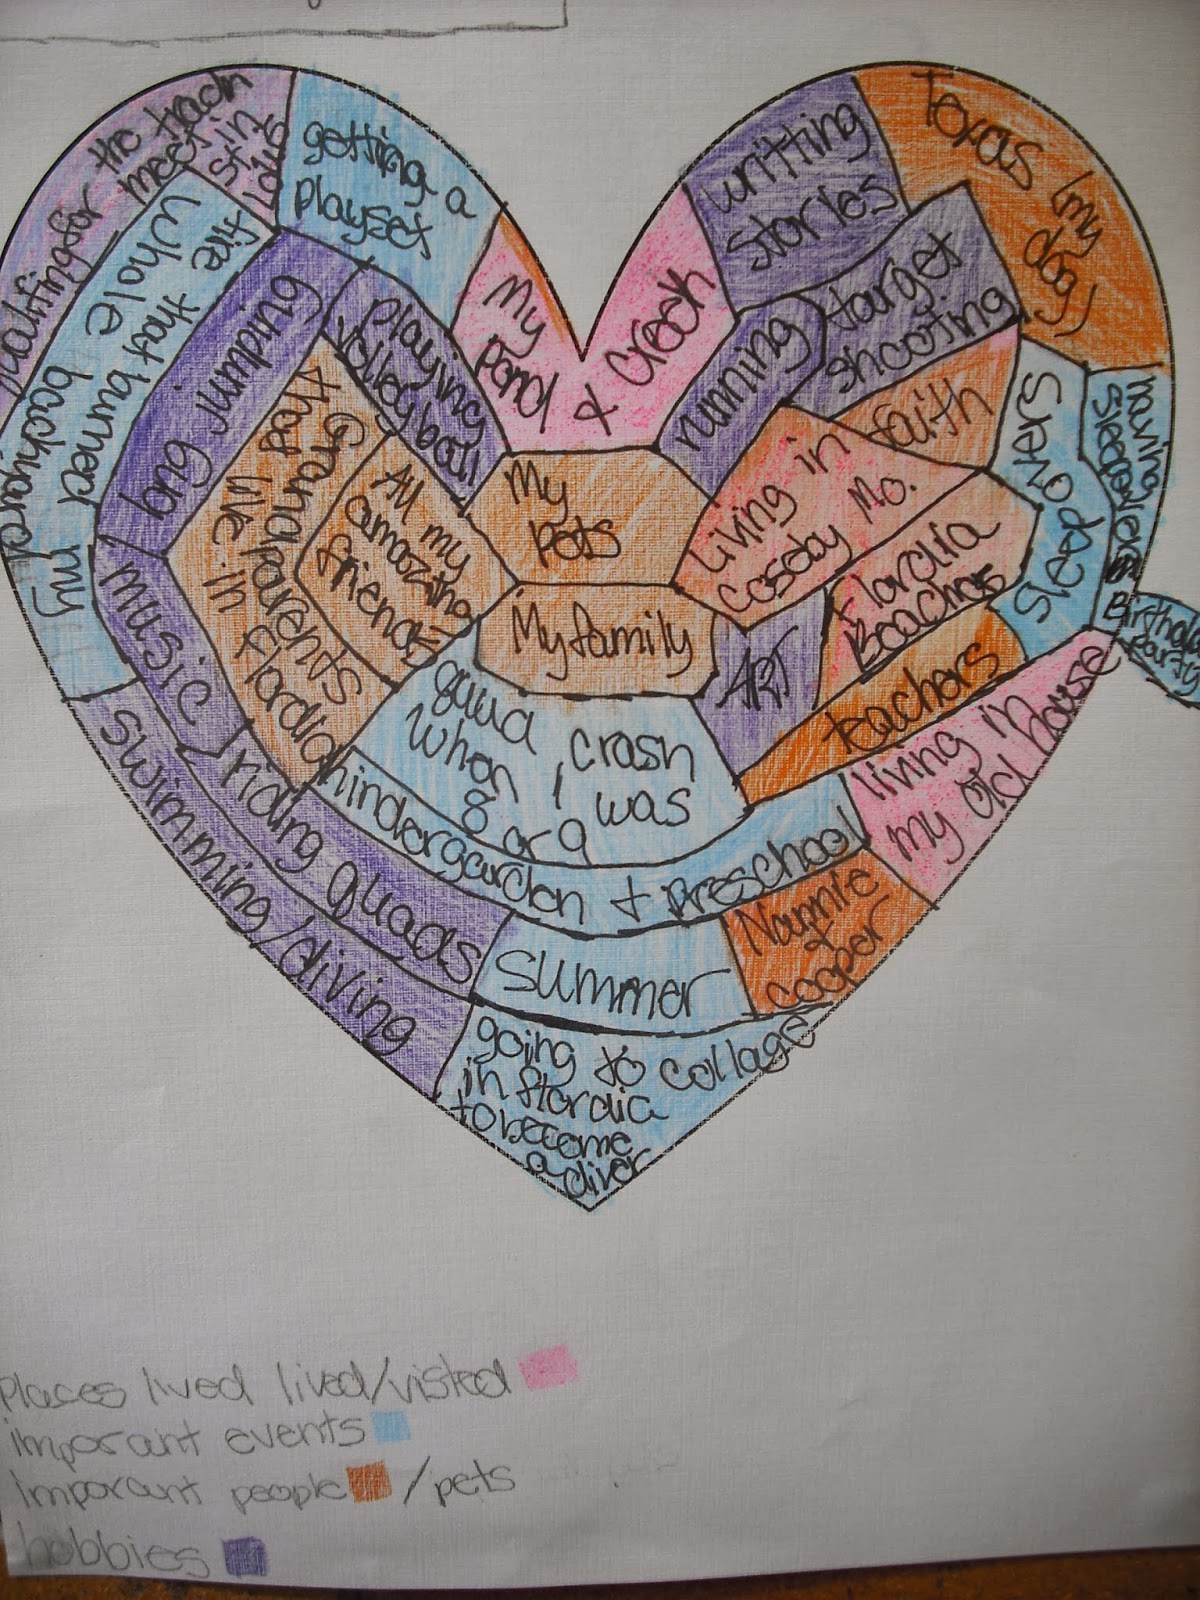 for the track
meet in
getting a
playset
My
pond
& Creek
writting
stories
Texas (my
dog)
fire that burned
whole backyard
my
long jumping
playing
volleyball
running
target
shooting
faith
Sleepovers
having
Grandparents
that live in
Flordia
All my
amazing
friends
My
pets
My family
Living in
Mo.
Flordia
Beaches
ART
teachers
Birthday
Party
music
quad crash
When I was
8 or 9
living in
my old house
swimming/diving
riding quads
kindergarden + preschool
summer
Nannie
+
cooper
going to collage
in flordia
to become
a diver
places lived lived/visted
imporant events
Imporant people /pets
hobbies